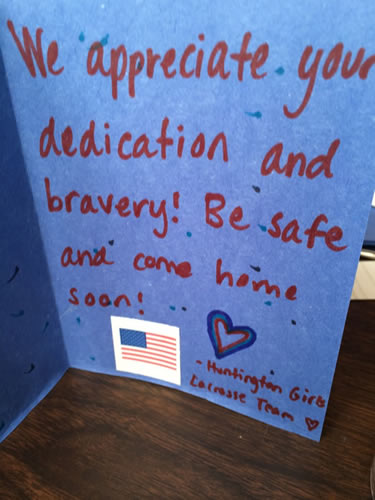 We appreciate your
dedication and
bravery! Be safe
and come home
soon!
- Huntington Girls
Lacrosse Team ♡